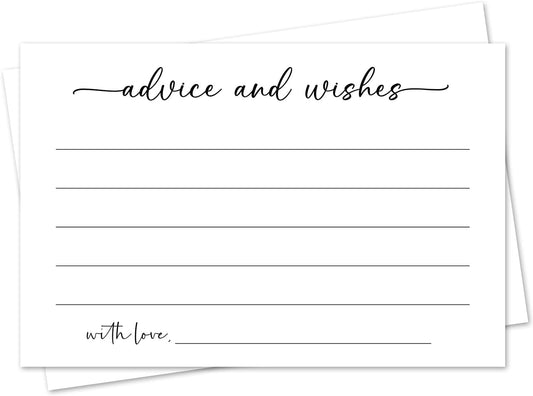 advice and wishes
with love,